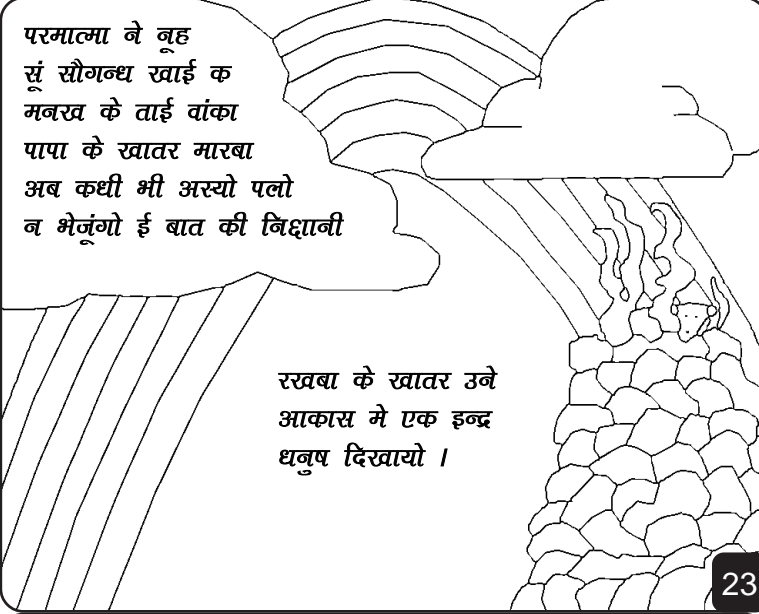 परमात्मा ने नूह
सूं सौगन्ध खाई क
मनख के ताई वांका
पापा के खातर मारबा
अब कधी भी अस्यो पलो
न भेजूंगो ई बात की निशानी
रखबा के खातर उने
आकास मे एक इन्द्र
धनुष दिखायो ।
23